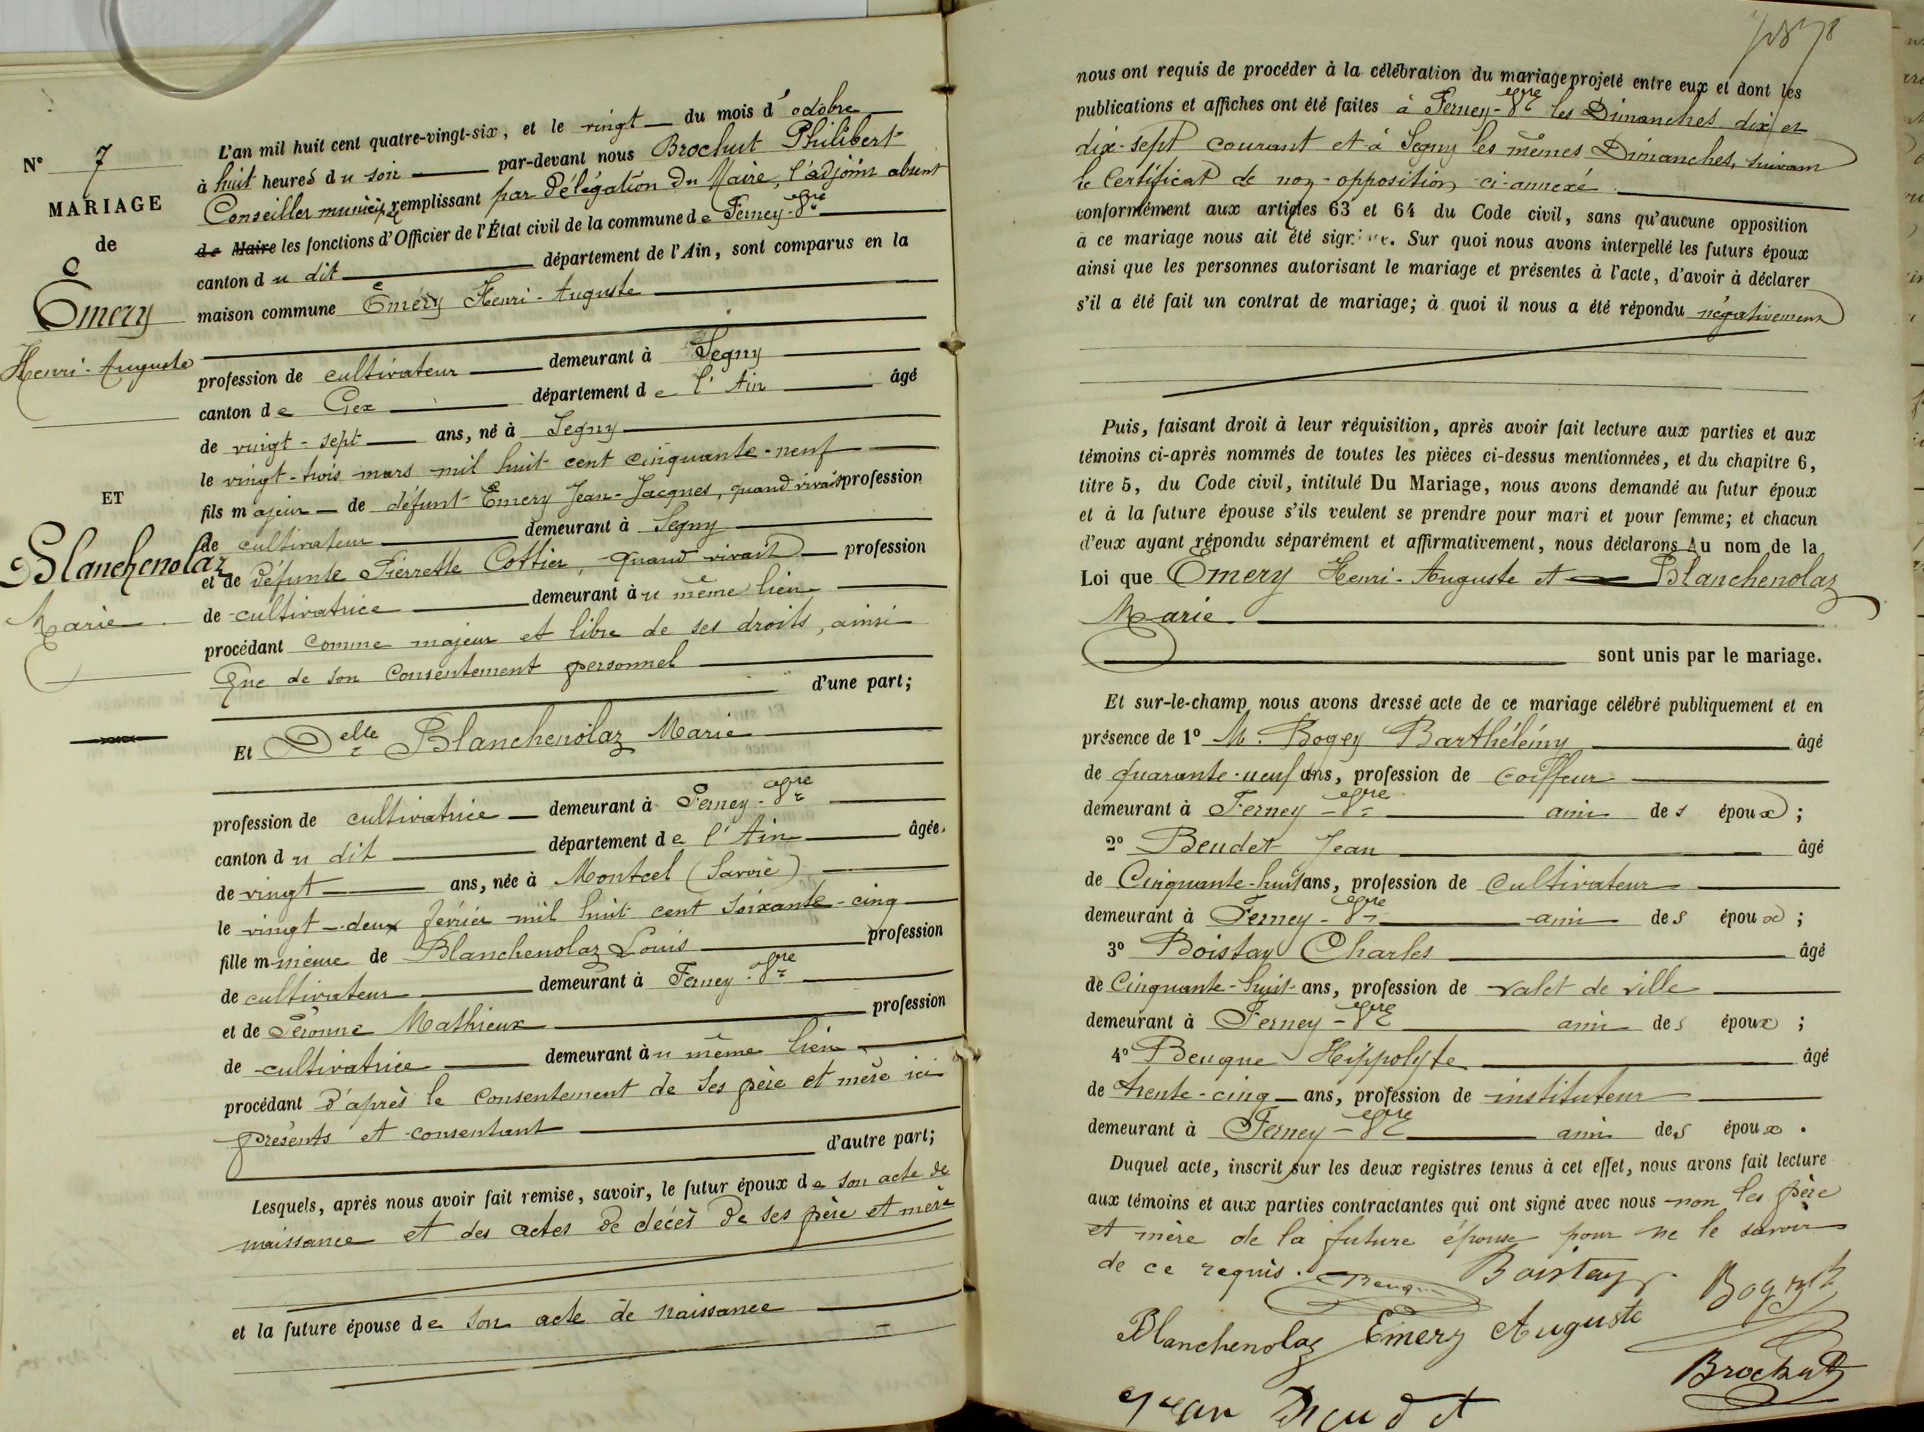 L'an mil huit cent quatre-vingt-six, et le vingt du mois d'octobre
à huit heures du soir par-devant nous Brochut Philibert
Conseiller municip. remplissant par délégation du Maire, l'adjoint absent
de Maire les fonctions d'Officier de l'État civil de la commune de Ferney-Vre
canton du dit département de l'Ain, sont comparus en la
maison commune Émery Henri-Auguste
profession de cultivateur demeurant à Segny
canton de Gex département de l'Ain âgé
de vingt-sept ans, né à Segny
le vingt-trois mars mil huit cent cinquante-neuf
fils majeur de défunt Émery Jean-Jacques, quand vivait profession
de cultivateur demeurant à Segny
et de défunte Pierrette Cottier, quand vivait profession
de cultivatrice demeurant au même lieu
procédant comme majeur et libre de ses droits, ainsi
que de son consentement personnel
d'une part;
Et Delle Blanchenolaz Marie
profession de cultivatrice demeurant à Ferney-Vre
canton du dit département de l'Ain âgée
de vingt ans, née à Montcel (Savoie)
le vingt-deux février mil huit cent soixante-cinq
fille mineure de Blanchenolaz Louis profession
de cultivateur demeurant à Ferney-Vre
et de Péronne Mathieux profession
de cultivatrice demeurant au même lieu
procédant d'après le consentement de ses père et mère ici
présents et consentant
d'autre part;
Lesquels, après nous avoir fait remise, savoir, le futur époux de son acte de
naissance et des actes de décès de ses père et mère
et la future épouse de son acte de naissance
N° 7
MARIAGE
de
Émery
Henri-Auguste
ET
Blanchenolaz
Marie
nous ont requis de procéder à la célébration du mariage projeté entre eux et dont les
publications et affiches ont été faites à Ferney-Vre les Dimanches dix et
dix-sept courant et à Segny les mêmes Dimanches, suivant
le Certificat de non-opposition ci-annexé
conformément aux articles 63 et 64 du Code civil, sans qu'aucune opposition
à ce mariage nous ait été signifiée. Sur quoi nous avons interpellé les futurs époux
ainsi que les personnes autorisant le mariage et présentes à l'acte, d'avoir à déclarer
s'il a été fait un contrat de mariage; à quoi il nous a été répondu négativement
Puis, faisant droit à leur réquisition, après avoir fait lecture aux parties et aux
témoins ci-après nommés de toutes les pièces ci-dessus mentionnées, et du chapitre 6,
titre 5, du Code civil, intitulé Du Mariage, nous avons demandé au futur époux
et à la future épouse s'ils veulent se prendre pour mari et pour femme; et chacun
d'eux ayant répondu séparément et affirmativement, nous déclarons Au nom de la
Loi que Émery Henri-Auguste et Blanchenolaz
Marie
sont unis par le mariage.
Et sur-le-champ nous avons dressé acte de ce mariage célébré publiquement et en
présence de 1° M. Bogey Barthélémy âgé
de quarante-neuf ans, profession de coiffeur
demeurant à Ferney-Vre ami des époux;
2° Beudet Jean âgé
de Cinquante-huit ans, profession de cultivateur
demeurant à Ferney-Vre ami des époux;
3° Boistay Charles âgé
de Cinquante-huit ans, profession de valet de ville
demeurant à Ferney-Vre ami des époux;
4° Beuque Hippolyte âgé
de trente-cinq ans, profession de instituteur
demeurant à Ferney-Vre ami des époux.
Duquel acte, inscrit sur les deux registres tenus à cet effet, nous avons fait lecture
aux témoins et aux parties contractantes qui ont signé avec nous non les père
et mère de la future épouse pour ne le savoir
de ce requis. Boistay
Blanchenolaz Émery Auguste
Brochut